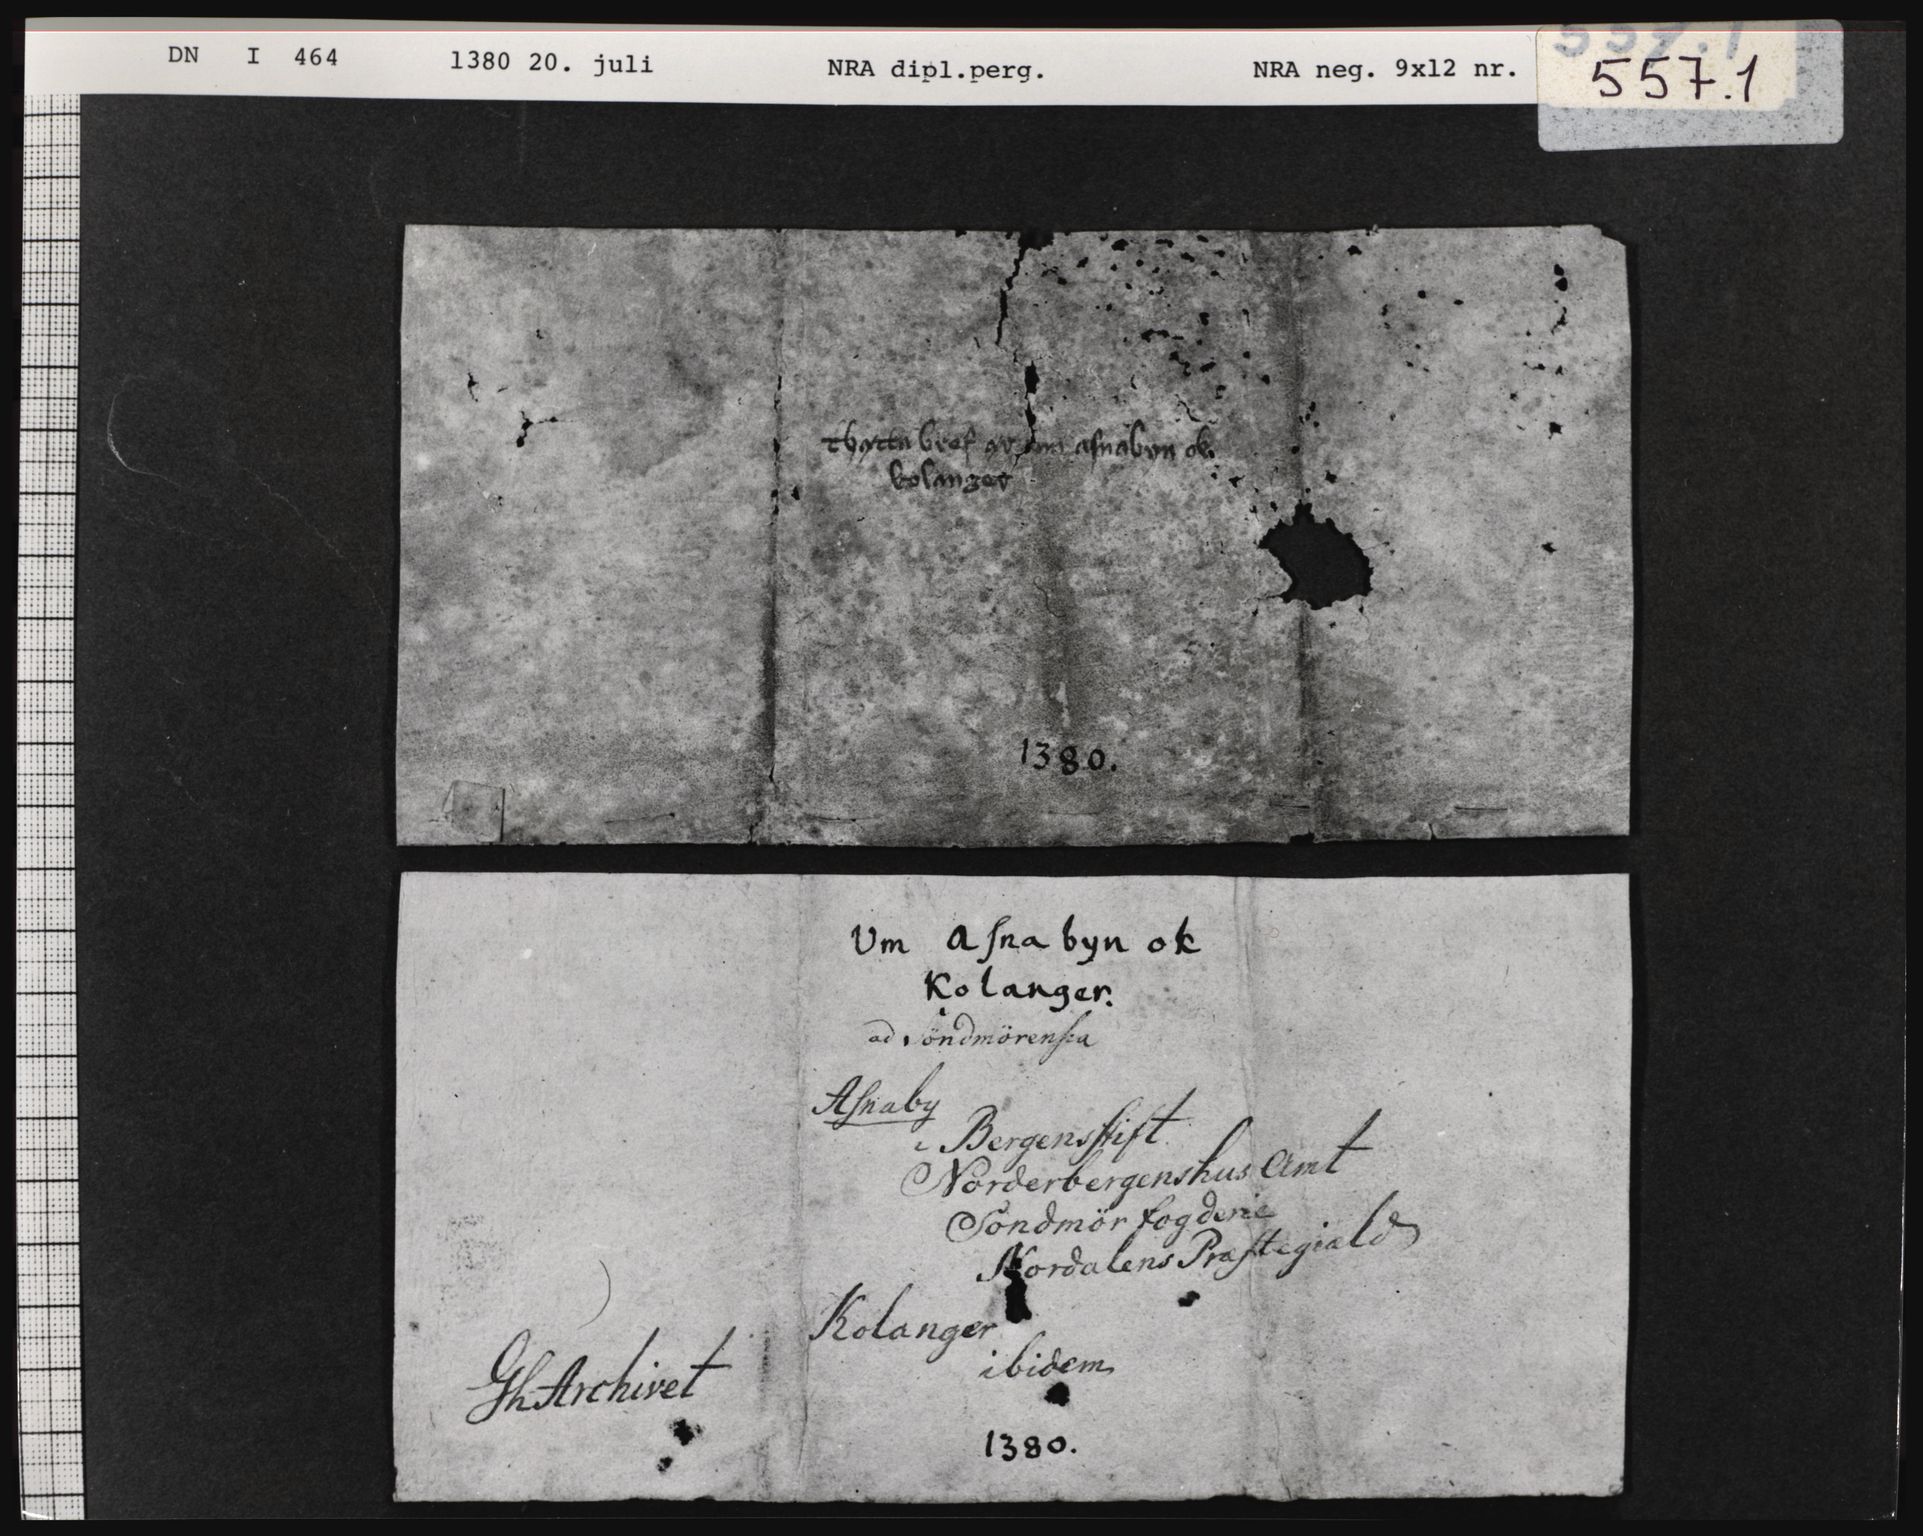 DN I 464 1380 20. juli NRA dipl.perg. NRA neg. 9x12 nr. 557.1
thætta bref ær um aſnabyn ok
kolanger
1380.
Um Aſnabyn ok
Kolanger.
ad Söndmörenſia
Aſnaby
i Bergensſtift
Norderbergenshus Amt
Söndmör fogderie
Nordalens Præſtegiald
Kolanger
ibidem
Gh Archivet
1380.